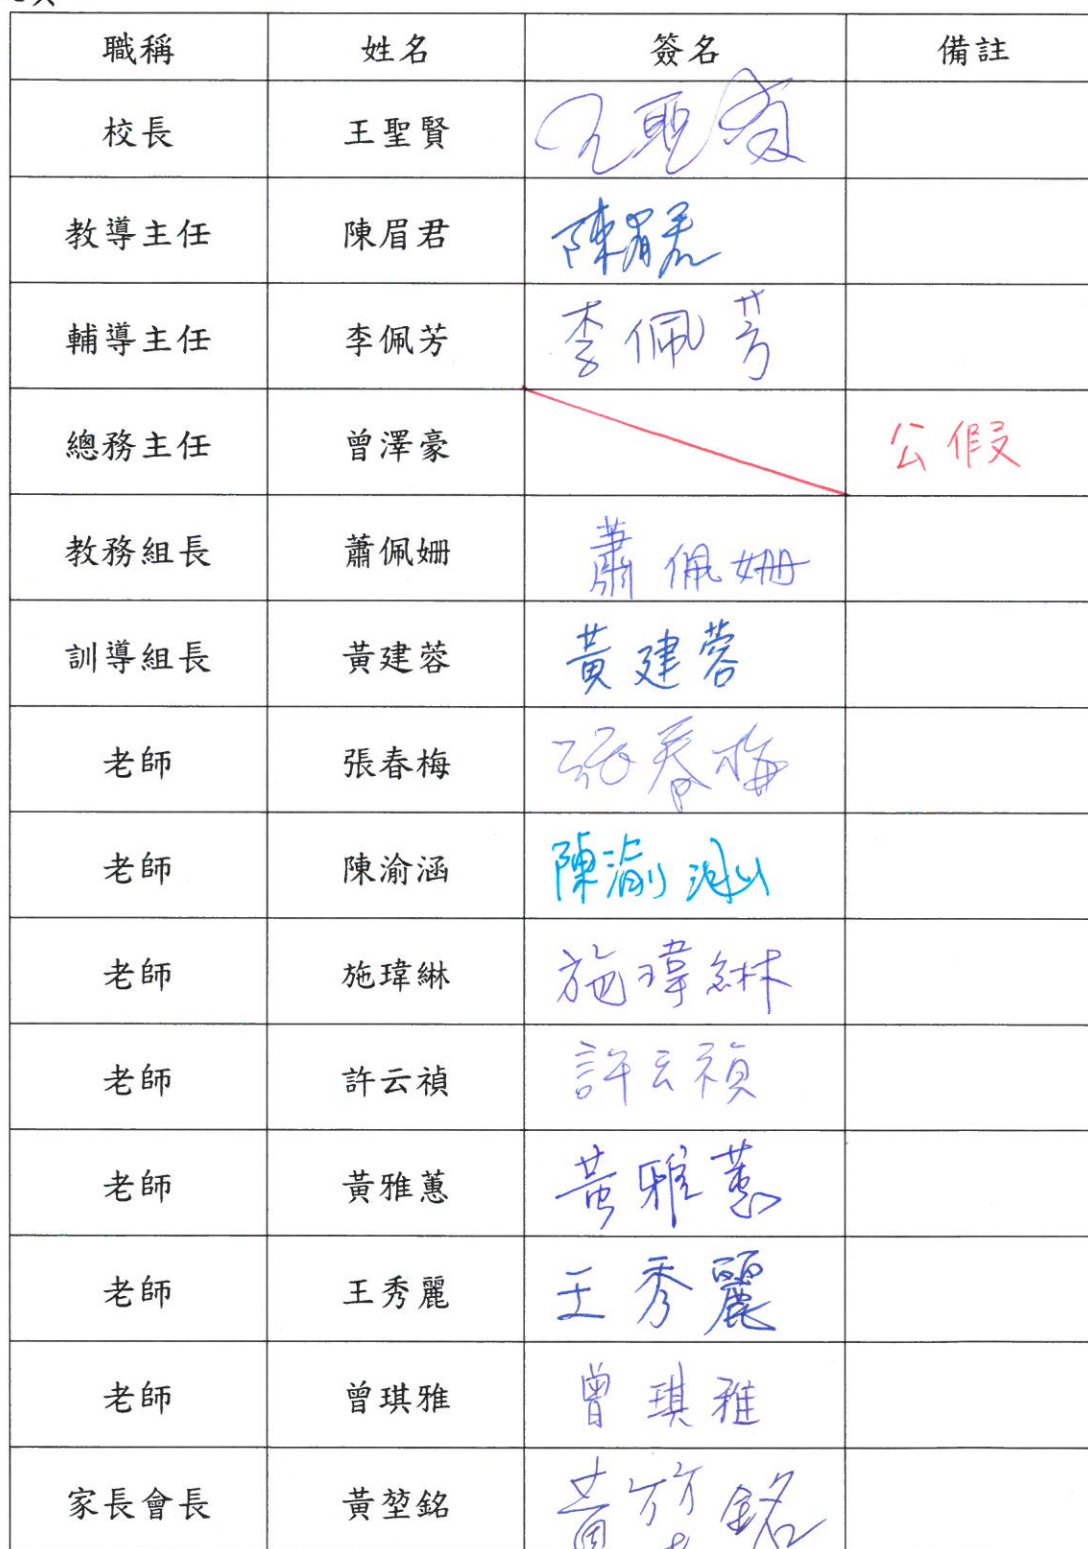 職稱 姓名 簽名 備註
校長 王聖賢 王聖賢
教導主任 陳眉君 陳眉君
輔導主任 李佩芳 李佩芳
總務主任 曾澤豪 公假
教務組長 蕭佩姍 蕭佩姍
訓導組長 黃建蓉 黃建蓉
老師 張春梅 張春梅
老師 陳渝涵 陳渝涵
老師 施瑋綝 施瑋綝
老師 許云禎 許云禎
老師 黃雅蕙 黃雅蕙
老師 王秀麗 王秀麗
老師 曾琪雅 曾琪雅
家長會長 黃堃銘 黃堃銘